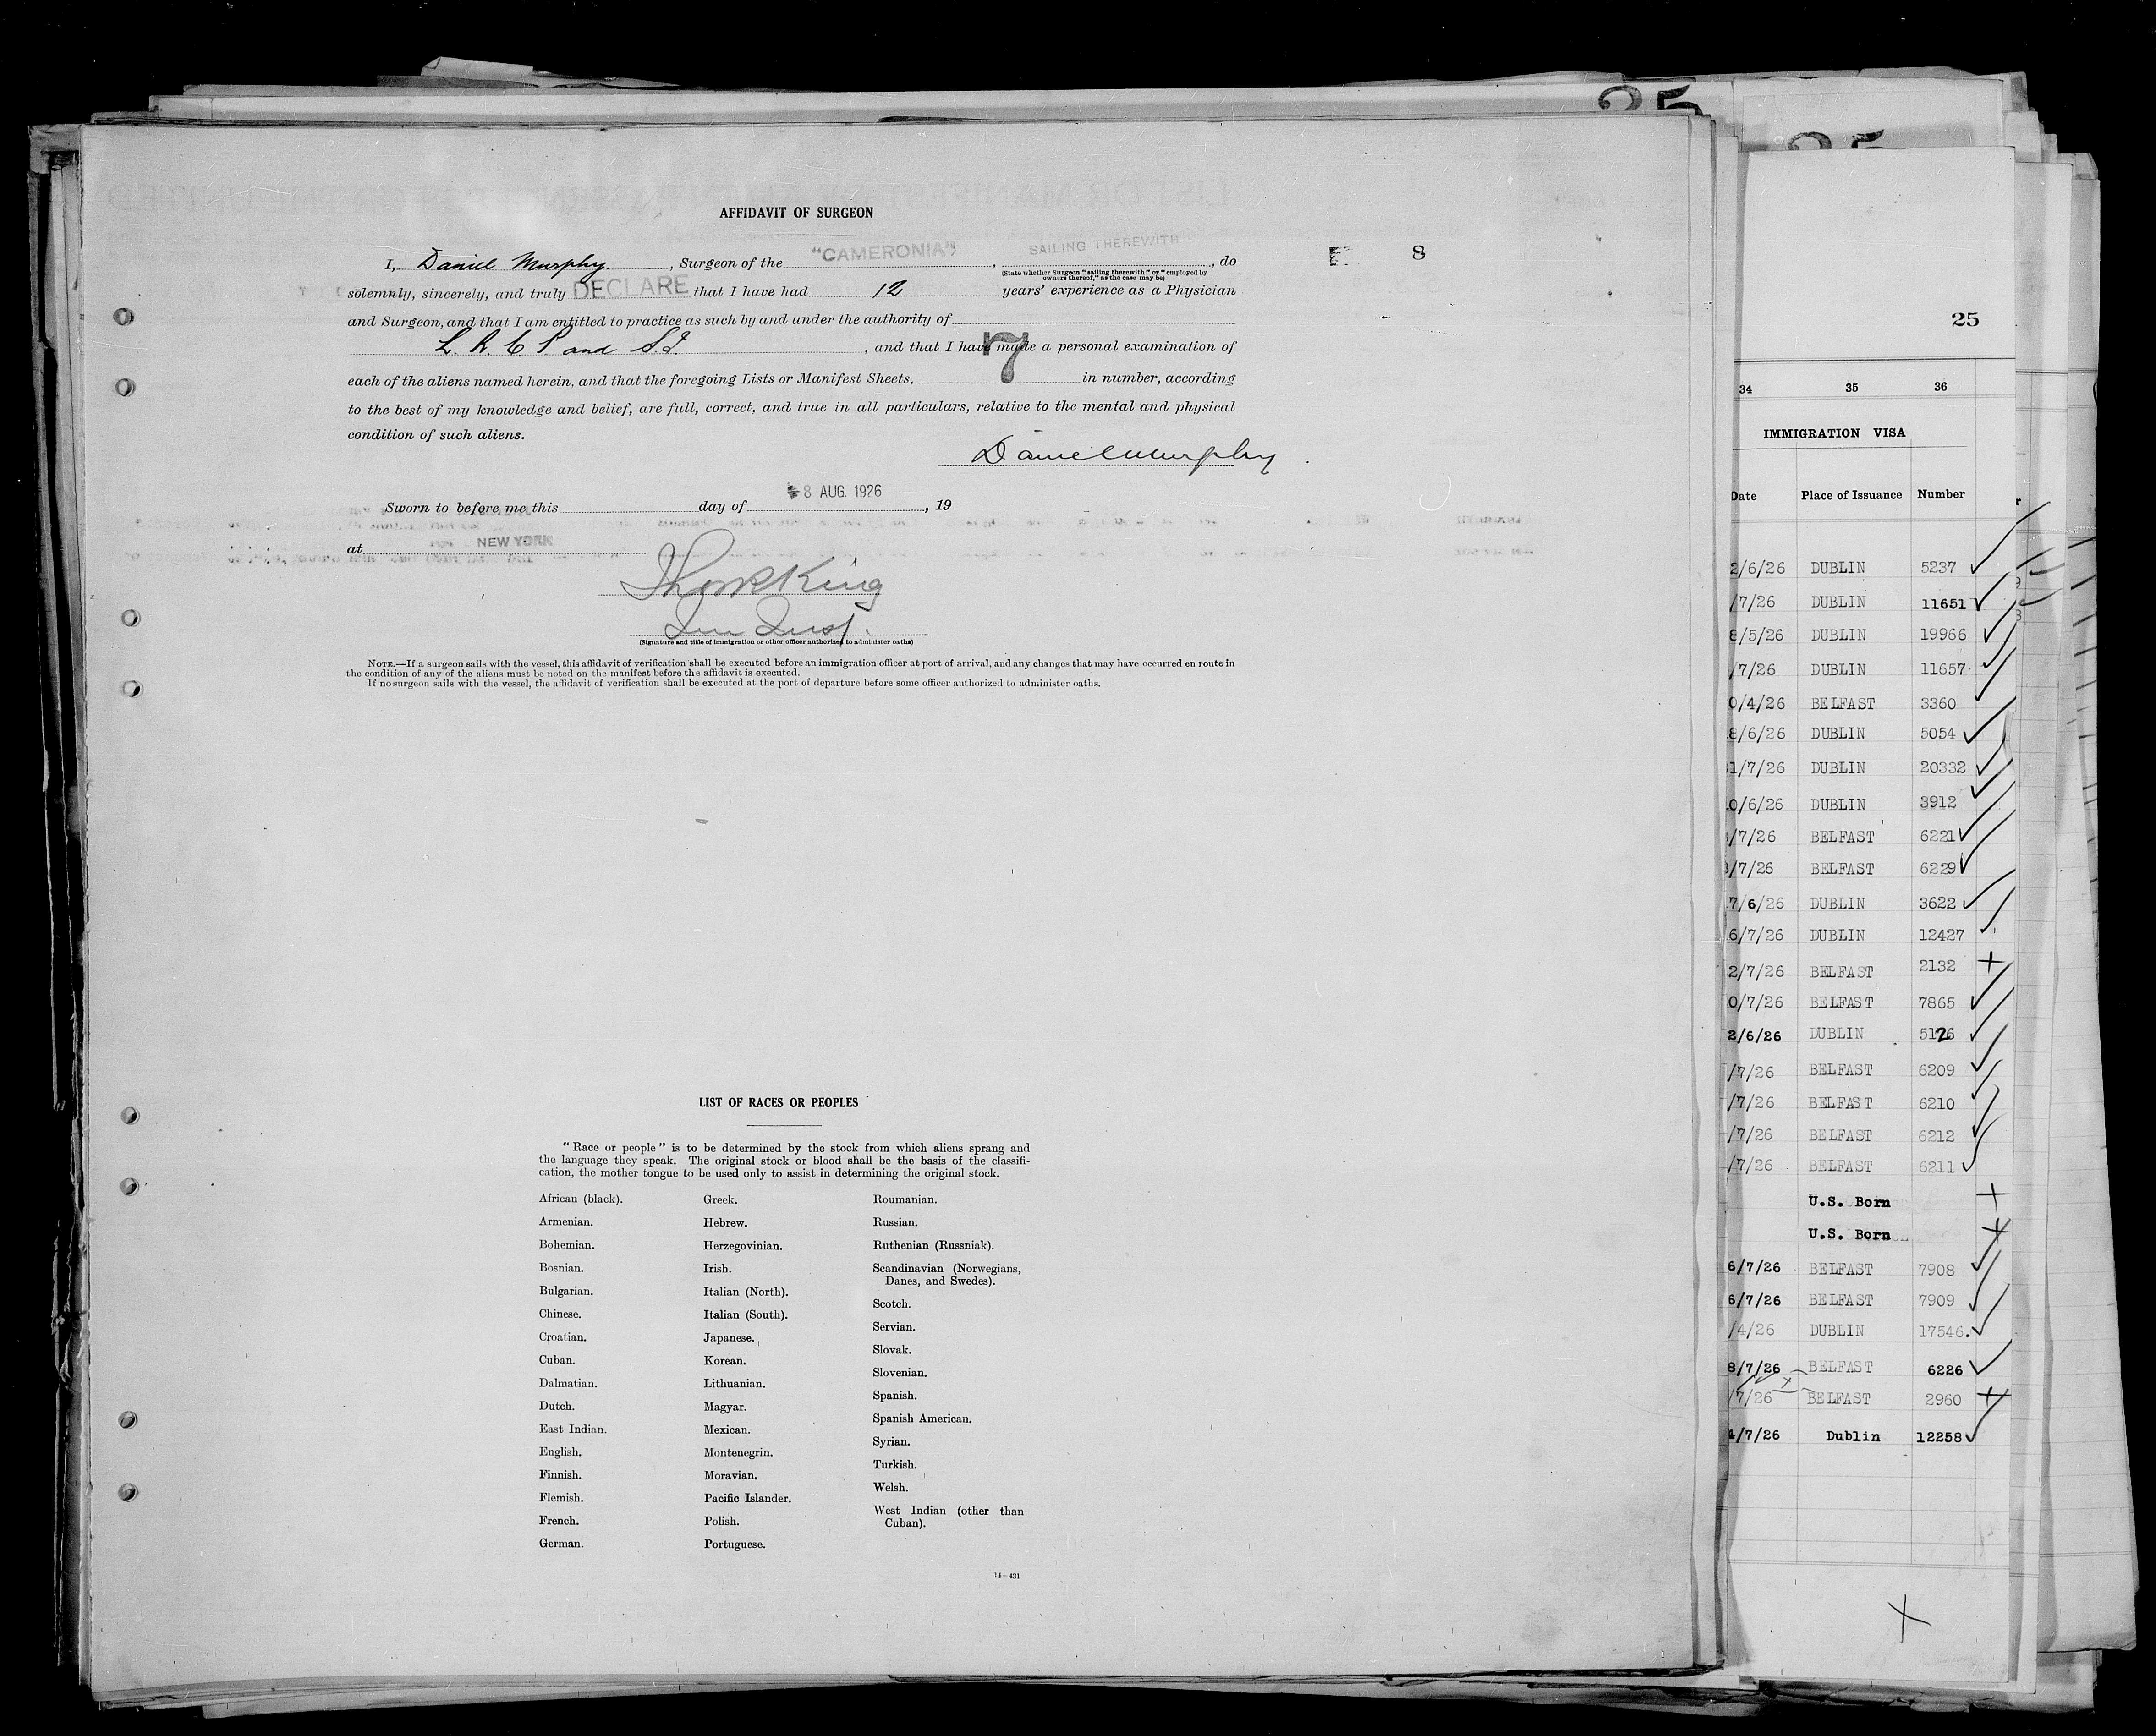 25
25
AFFIDAVIT OF SURGEON
I, Daniel Murphy, Surgeon of the "CAMERONIA", SAILING THEREWITH, do
(State whether Surgeon "sailing therewith" or "employed by owners thereof," as the case may be)
solemnly, sincerely, and truly DECLARE that I have had 12 years' experience as a Physician
and Surgeon, and that I am entitled to practice as such by and under the authority of
L. R. C. P. and S. I., and that I have made a personal examination of
each of the aliens named herein, and that the foregoing Lists or Manifest Sheets, 7 in number, according
to the best of my knowledge and belief, are full, correct, and true in all particulars, relative to the mental and physical
condition of such aliens.
Daniel Murphy
Sworn to before me this day of 8 AUG. 1926, 19
at NEW YORK
King
(Signature and title of immigration or other officer authorized to administer oaths)
NOTE.—If a surgeon sails with the vessel, this affidavit of verification shall be executed before an immigration officer at port of arrival, and any changes that may have occurred en route in
the condition of any of the aliens must be noted on the manifest before the affidavit is executed.
If no surgeon sails with the vessel, the affidavit of verification shall be executed at the port of departure before some officer authorized to administer oaths.
8
LIST OF RACES OR PEOPLES
"Race or people" is to be determined by the stock from which aliens sprang and
the language they speak. The original stock or blood shall be the basis of the classifi-
cation, the mother tongue to be used only to assist in determining the original stock.
African (black).
Armenian.
Bohemian.
Bosnian.
Bulgarian.
Chinese.
Croatian.
Cuban.
Dalmatian.
Dutch.
East Indian.
English.
Finnish.
Flemish.
French.
German.
Greek.
Hebrew.
Herzegovinian.
Irish.
Italian (North).
Italian (South).
Japanese.
Korean.
Lithuanian.
Magyar.
Mexican.
Montenegrin.
Moravian.
Pacific Islander.
Polish.
Portuguese.
Roumanian.
Russian.
Ruthenian (Russniak).
Scandinavian (Norwegians,
Danes, and Swedes).
Scotch.
Servian.
Slovak.
Slovenian.
Spanish.
Spanish American.
Syrian.
Turkish.
Welsh.
West Indian (other than
Cuban).
14—431
25
34 35 36
IMMIGRATION VISA
Date Place of Issuance Number
2/6/26 DUBLIN 5237
/7/26 DUBLIN 11651
8/5/26 DUBLIN 19966
/7/26 DUBLIN 11657
0/4/26 BELFAST 3360
8/6/26 DUBLIN 5054
1/7/26 DUBLIN 20332
0/6/26 DUBLIN 3912
/7/26 BELFAST 6221
/7/26 BELFAST 6229
7/6/26 DUBLIN 3622
6/7/26 DUBLIN 12427
2/7/26 BELFAST 2132
0/7/26 BELFAST 7865
2/6/26 DUBLIN 5126
/7/26 BELFAST 6209
/7/26 BELFAST 6210
/7/26 BELFAST 6212
/7/26 BELFAST 6211
U.S. Born
U.S. Born
6/7/26 BELFAST 7908
6/7/26 BELFAST 7909
/4/26 DUBLIN 17546.
8/7/26 BELFAST 6226
/7/26 BELFAST 2960
4/7/26 Dublin 12258